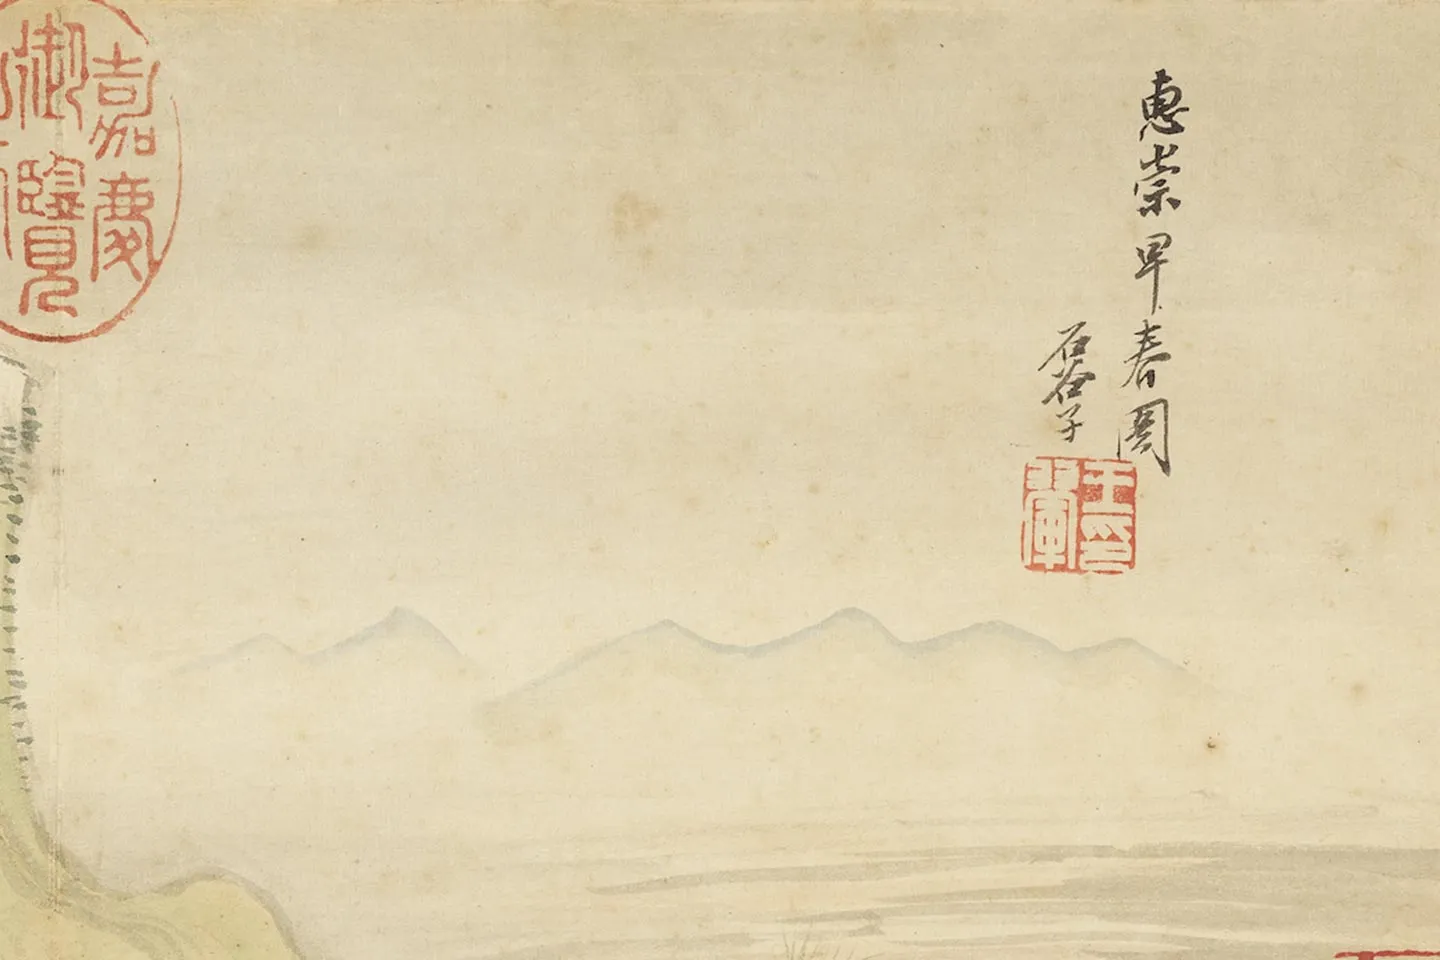 惠崇早春圖
石谷子
王翬印
嘉慶
御覽